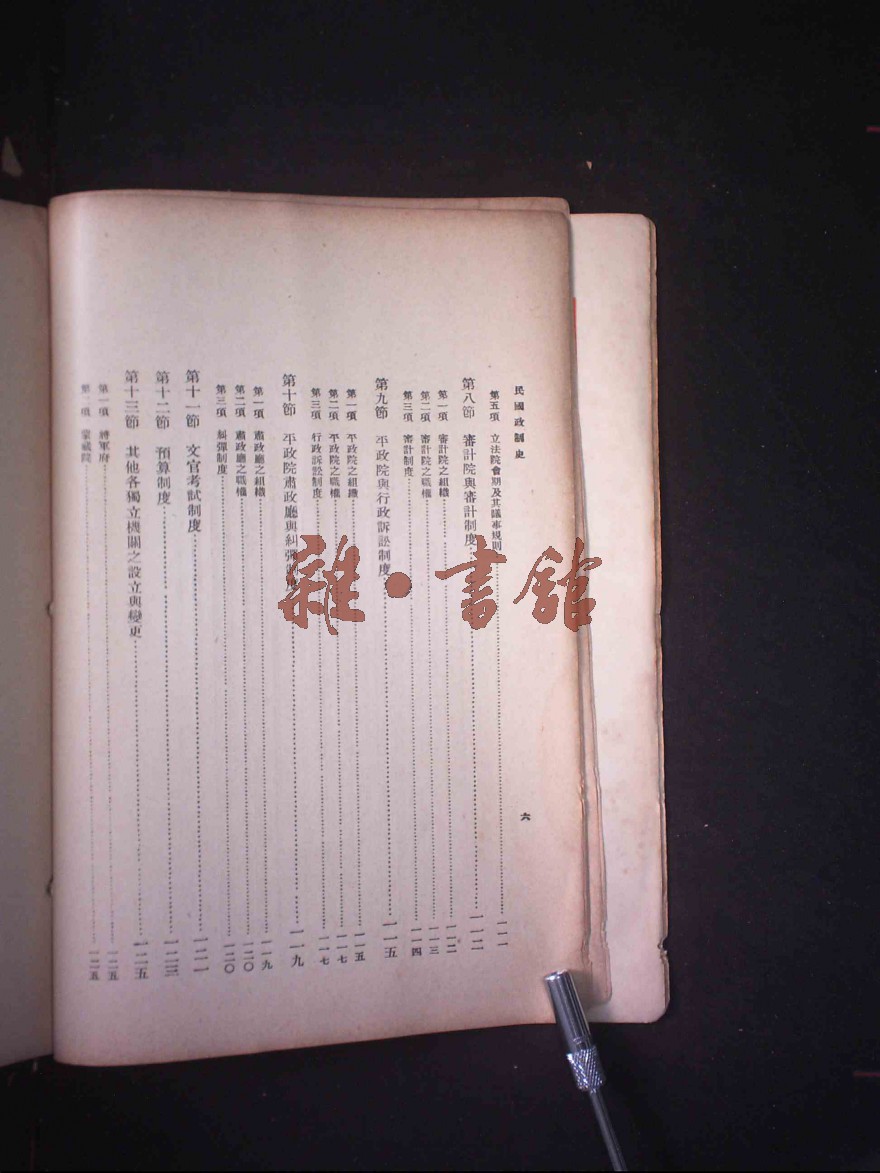 民國政制史
六
第五項 立法院會期及其議事規則 一一一
第八節 審計院與審計制度 一一二
第一項 審計院之組織 一一二
第二項 審計院之職權 一一三
第三項 審計制度 一一四
第九節 平政院與行政訴訟制度 一一五
第一項 平政院之組織 一一五
第二項 平政院之職權 一一七
第三項 行政訴訟制度 一一七
第十節 平政院肅政廳與糾彈制度 一一九
第一項 肅政廳之組織 一一九
第二項 肅政廳之職權 一二〇
第三項 糾彈制度 一二〇
第十一節 文官考試制度 一二一
第十二節 預算制度 一二三
第十三節 其他各獨立機關之設立與變更 一二五
第一項 將軍府 一二五
第二項 蒙藏院 一二五
雜·書館